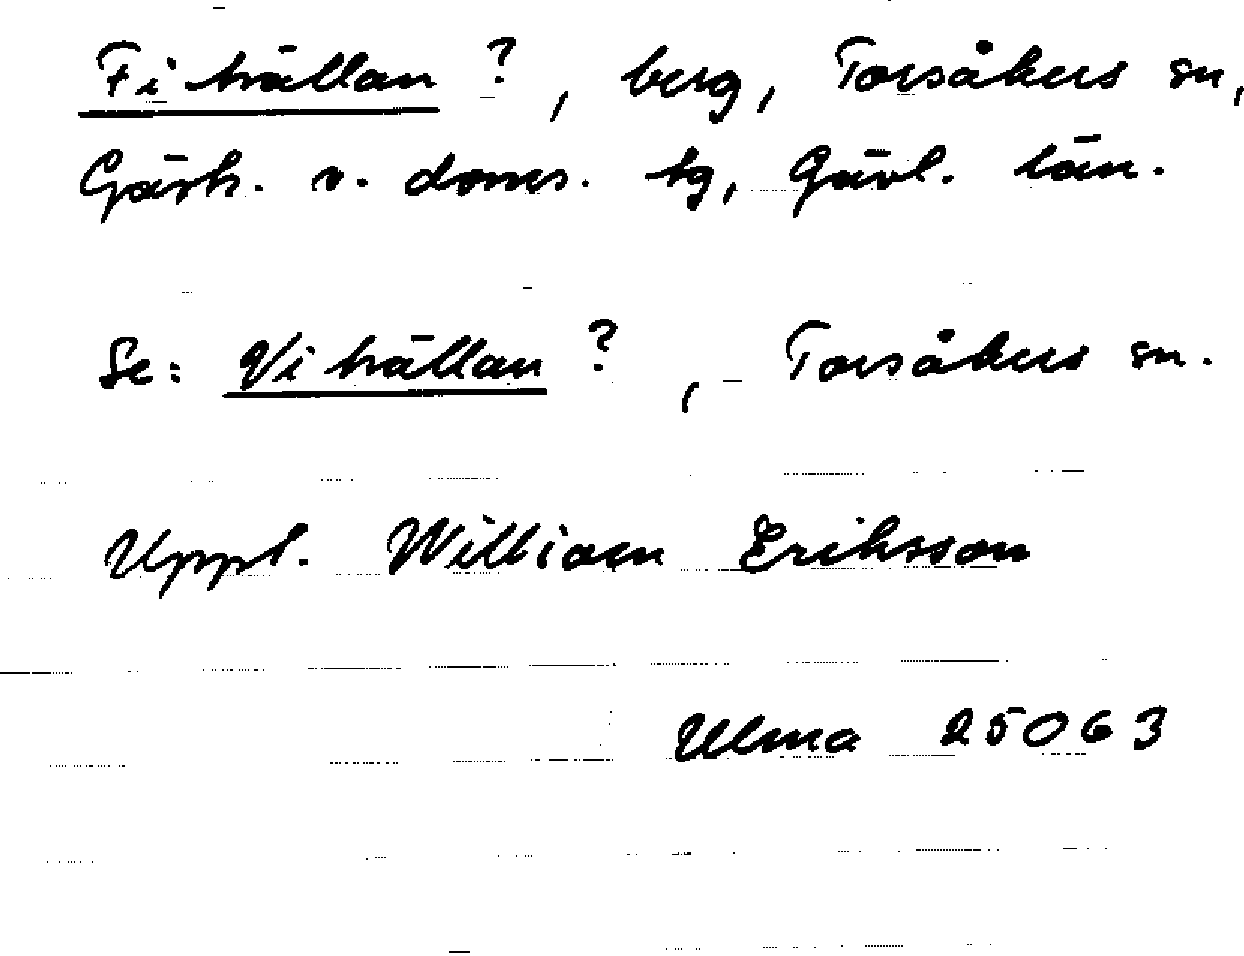 Fi trällan ?, berg, Torsåkers sn,
Gästr. v. doms. tg, Gävl. län.
Se: Vi trällan ?, Torsåkers sn.
Uppt. William Eriksson
Ulma 25063